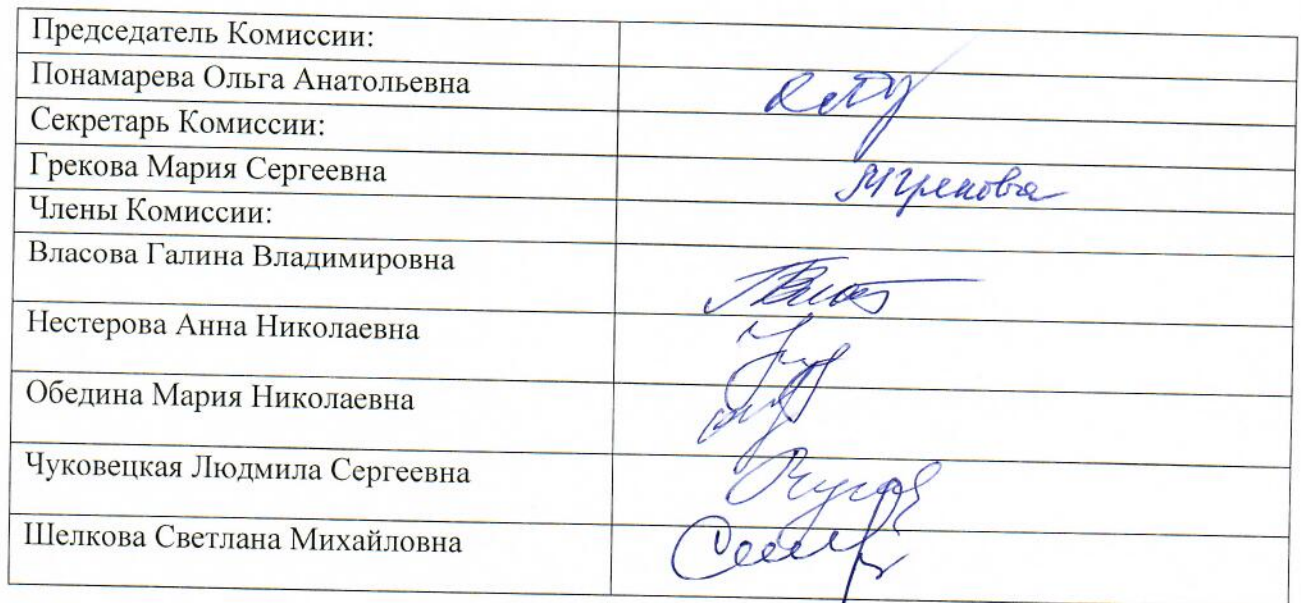 Председатель Комиссии:
Понамарева Ольга Анатольевна
Секретарь Комиссии:
Грекова Мария Сергеевна
МГрекова
Члены Комиссии:
Власова Галина Владимировна
Нестерова Анна Николаевна
Обедина Мария Николаевна
Чуковецкая Людмила Сергеевна
Шелкова Светлана Михайловна